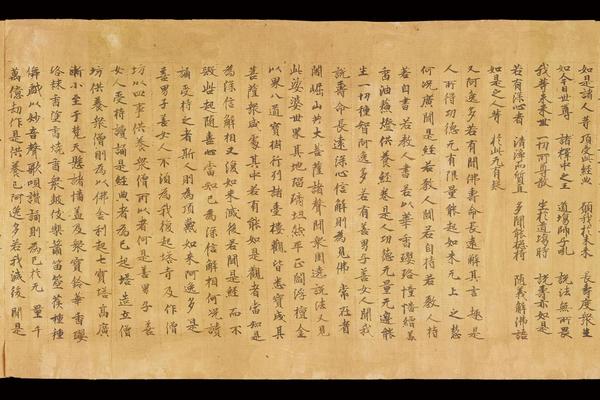 如是諸人等 頂受此經典 願我於未來 長壽度衆生
如今日世尊 諸釋中之王 道場師子吼 說法無所畏
我等未來世 一切所尊敬 坐於道場時 說壽亦如是
若有深心者 清淨而質直 多聞能捴持 隨義解佛語
如是之人等 於此无有疑
又阿逸多若有聞佛壽命長遠解其言趣是
人所得功德无有限量能起如來无上之慧
何况廣聞是經若教人聞若自持若教人持
若自書若教人書若以華香瓔珞幢幡繒盖
香油蘓燈供養經卷是人功德无量无邊能
生一切種智阿逸多若有善男子善女人聞我
說壽命長遠深心信解則為見佛常在耆
闍崛山共大菩薩諸聲聞衆圍遶說法又見
此娑婆世界其地琉璃坦然平正閻浮檀金
以界八道寶樹行列諸臺樓觀皆悉寶成其
菩薩衆咸處其中若有能如是觀者當知是
為深信解相又復如來滅後若聞是經而不
毀呰起隨喜心當知已為深信解相何况讀
誦受持之者斯人則為頂戴如來阿逸多是
善男子善女人不須為我復起塔寺及作僧
坊以四事供養衆僧所以者何是善男子善
女人受持讀誦是經典者為已起塔造立僧
坊供養衆僧則為以佛舍利起七寶塔高廣
漸小至于梵天懸諸幡盖及衆寶鈴華香瓔
珞末香塗香燒香衆鼓伎樂簫笛箜篌種種
儛戲以妙音聲歌唄讚頌則為已於无量千
萬億劫作是供養已阿逸多若我滅後聞是